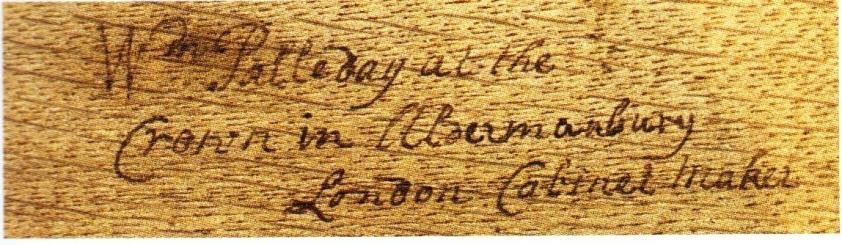 Wm Polleday at the
Crown in Aldermanbury
London Cabinet Maker